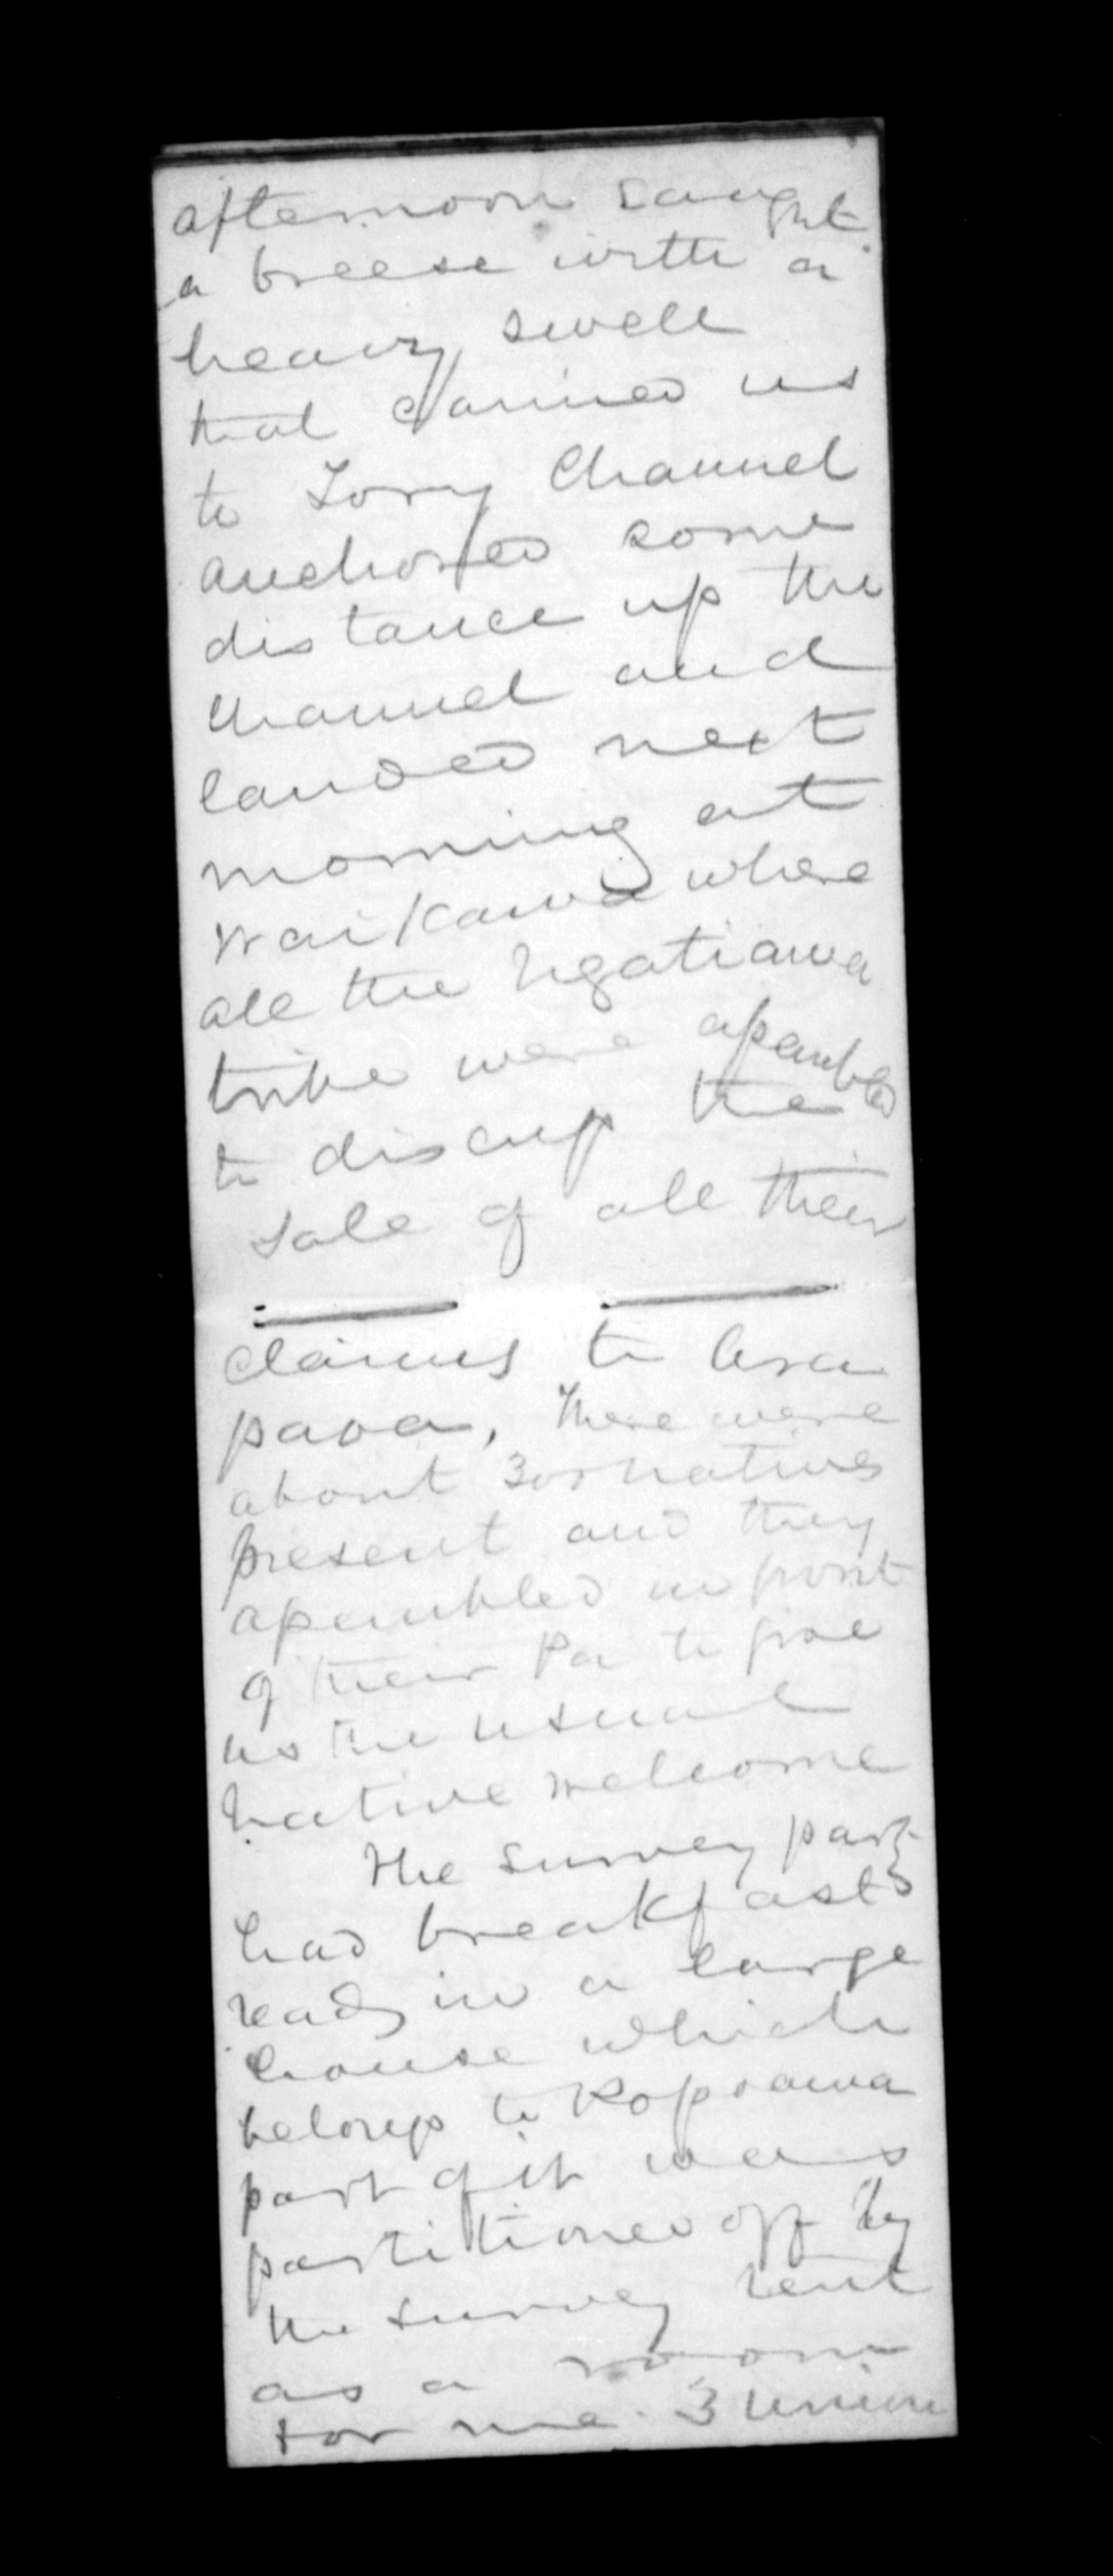 afternoon caught
a breeze with a
heavy swell
that carried us
to Tory Channel
anchored some
distance up the
Channel and
landed next
morning at
Waikawa where
all the Ngatiawa
tribe were assembled
to discuss the
sale of all their
claims to Ara
paoa, There were
about 300 natives
present and they
assembled in front
of their Pa to give
us the usual
native welcome
The Survey party
had breakfast
ready in a large
house which
belongs to Ropoama
part of it was
partitioned off by
the survey tent
as a room
for me. 3